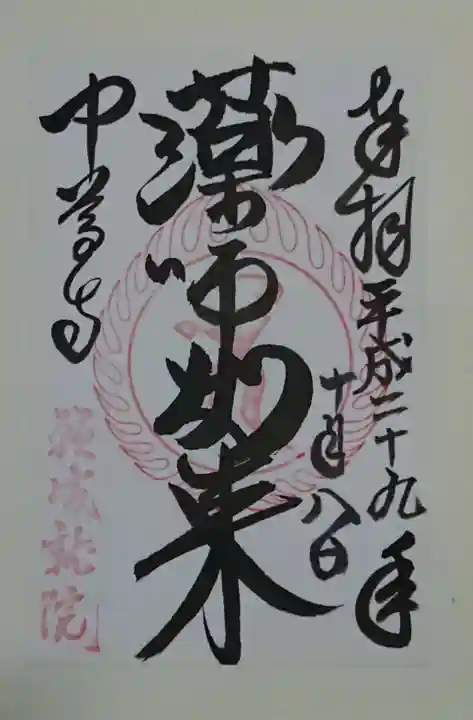 奉拝 平成二十九年
十月八日
薬師如来
中尊寺